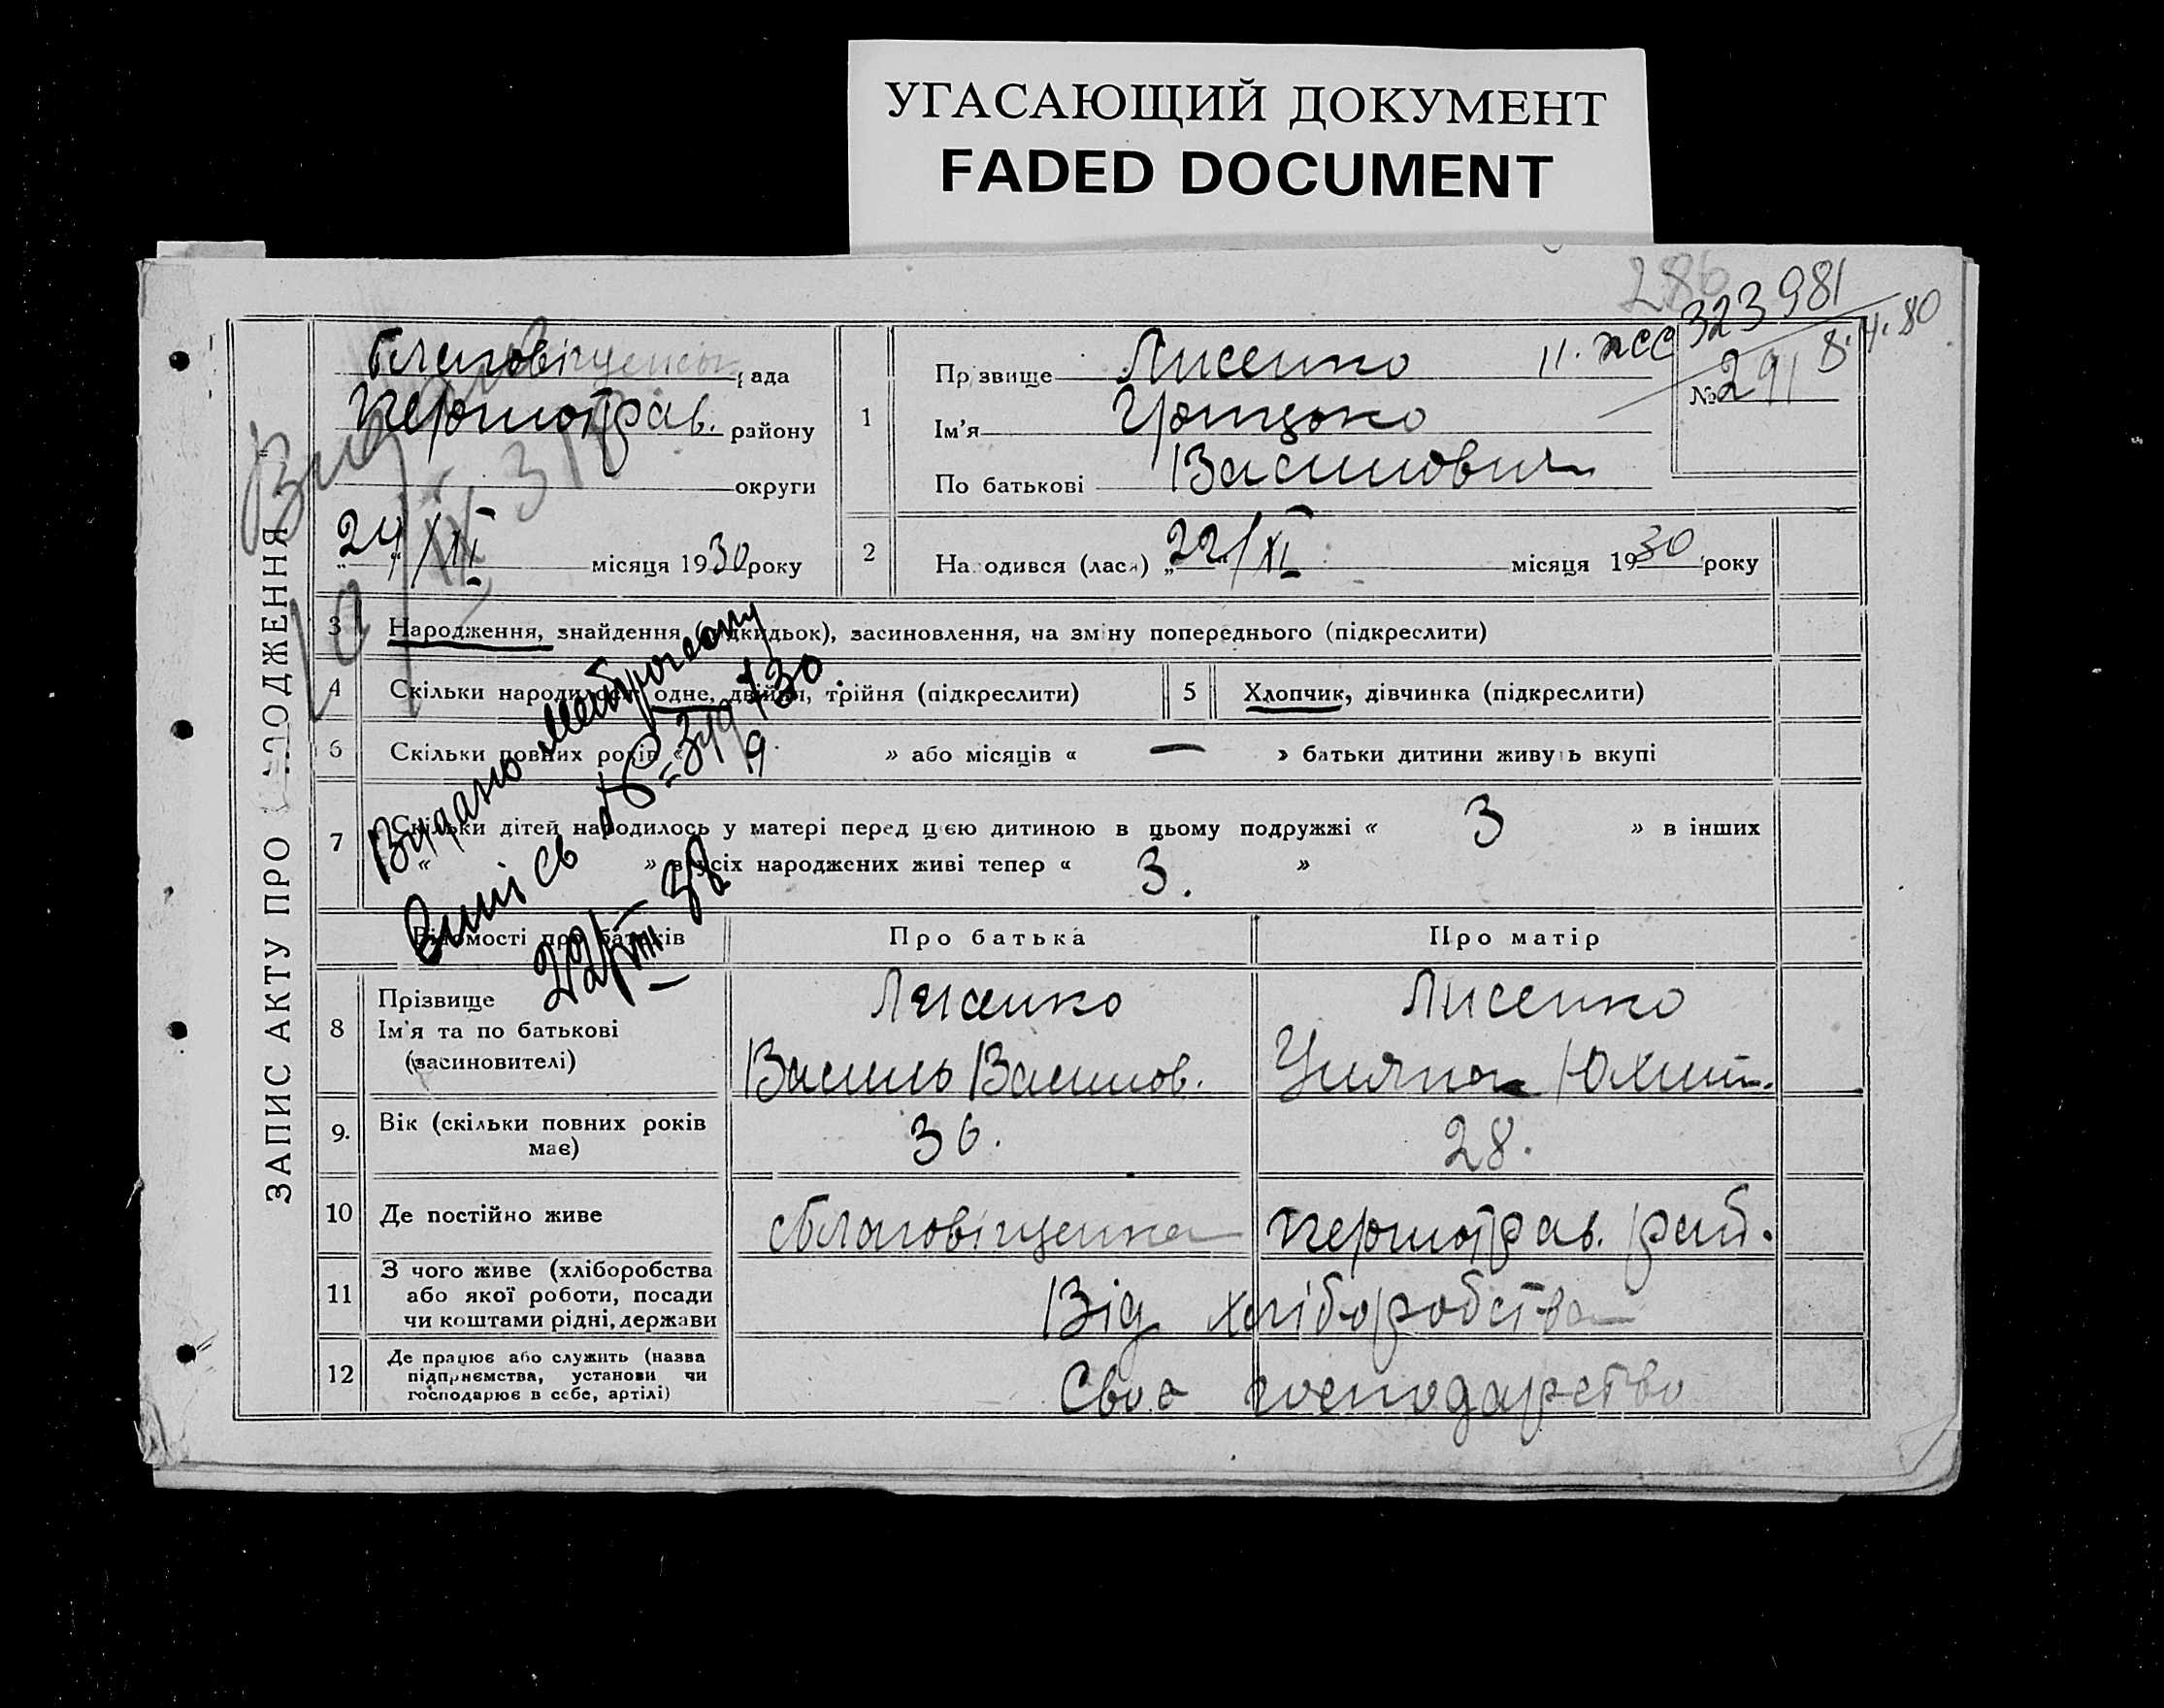 УГАСАЮЩИЙ ДОКУМЕНТ
FADED DOCUMENT
286
323981
8.4.80
ЗАПИС АКТУ ПРО
Благовіщенськ рада
Першотрав. району
округи
24/XII місяця 1930 року
1
Прізвище Лисенко
Ім'я Грицько
По батькові Васильович
II. ЖСС
№ 291
2 Народився (лася) „22“/XI місяця 1930 року
3 Народження, знайдення (підкидьок), засиновлення, на зміну попереднього (підкреслити)
4 Скільки народилося: одне, двійня, трійня (підкреслити)
5 Хлопчик, дівчинка (підкреслити)
6 Скільки повних років « » або місяців « — » батьки дитини живуть вкупі
7 Скільки дітей народилось у матері перед цією дитиною в цьому подружжі « 3 » в інших
« » з усіх народжених живі тепер « 3. »
Видано
22/VIII 38
Відомості про батьків
Про батька
Про матір
8 Прізвище
Ім'я та по батькові
(засиновителі)
Лисенко
Василь Васильов.
Лисенко
Уляна Юхим.
9. Вік (скільки повних років має)
36.
28.
10 Де постійно живе
с Благовіщенка Першотрав. рай.
11 З чого живе (хліборобства
або якої роботи, посади
чи коштами рідні, держави
Від хліборобства
12 Де працює або служить (назва
підприємства, установи чи
господарює в себе, артілі)
Своє господарство